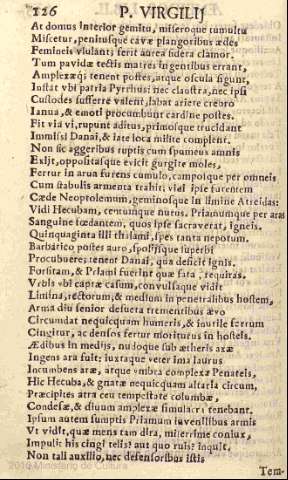 126 P. VIRGILIJ
At domus interior gemitu, miseroque tumultu
Miscetur, penitusque cavæ plangoribus ædes
Femineis ululant; ferit aurea sidera clamor.
Tum pavidæ tectis matres ingentibus errant,
Amplexæq; tenent postes, atque oscula figunt,
Instat vbi patria Pyrrhus: nec claustra, nec ipsi
Custodes sufferre valent, labat ariete crebro
Ianua, & emoti procumbunt cardine postes.
Fit via vi, rupunt aditus, primosque trucidant
Immissi Danai, & late loca milite complent.
Non sic aggeribus ruptis cum spumeus amnis
Exijt, oppositasque evicit gurgite moles,
Fertur in arua furens cumulo, camposque per omneis
Cum stabulis armenta trahit; vidi ipse furentem
Cæde Neoptolemum, geminosque in limine Atreidas:
Vidi Hecubam, centumque nurus, Priamumque per aras
Sanguine fœdantem, quos ipse sacraverat, igneis.
Quinquaginta illi thalami, spes tanta nepotum,
Barbarico postes auro, spolijsque superbi
Procubuere; tenent Danai, qua deficit ignis.
Forsitam, & Priami fuerint quæ fata, requiras.
Vrbis vbi captæ casum, convulsaque vidit
Limina, tectorum, & medium in penetralibus hostem,
Arma diu senior desueta trementibus ævo
Circumdat nequicquam humeris, & inutile ferrum
Cingitur, ac densos fertur moriturus in hosteis.
Ædibus in medijs, nudoque sub ætheris axe
Ingens ara fuit; iuxtaque veter ima laurus
Incumbens aræ, atque vmbra complexa Penateis,
Hic Hecuba, & gnatæ nequicquam altaria circum,
Præcipites atra ceu tempestate columbæ,
Condesæ, & diuum amplexæ simulacra tenebant.
Ipsum autem sumptis Priamum iuvenilibus armis
Vt vidit, quæ mens tam dira, miserrime coniux,
Impulit his cingi telis? aut quo ruis? inquit.
Non tali auxilio, nec defensoribus istis
Tem-
2010 Ministerio de Cultura